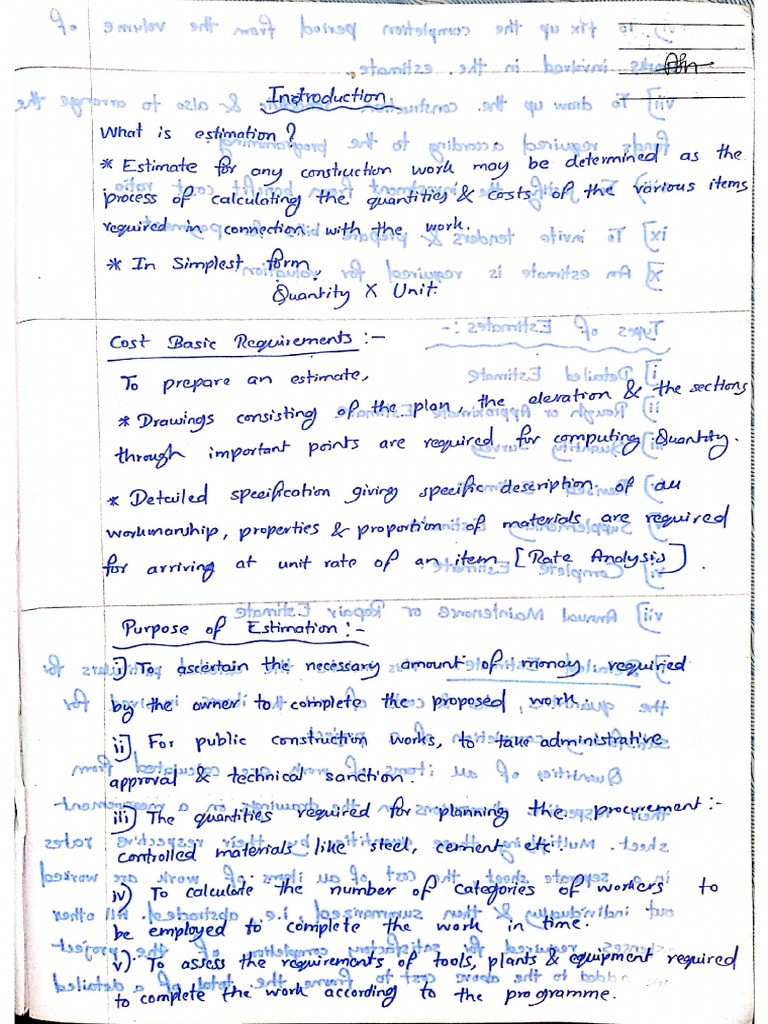 Indroduction
What is estimation?
* Estimate for any construction work may be determined as the
process of calculating the quantities & costs of the various items
required in connection with the work.
* In Simplest form,
Quantity X Unit
Cost Basic Requirements :-
To prepare an estimate,
* Drawings consisting of the plan, the elevation & the sections
through important points are required for computing Quantity.
* Detailed specification giving specific description of all
workmanship, properties & proportion of materials are required
for arriving at unit rate of an item [Rate Analysis].
Purpose of Estimation :-
i) To ascertain the necessary amount of money required
by the owner to complete the proposed work.
ii) For public construction works, to take administrative
approval & technical sanction.
iii) The quantities required for planning the procurement :-
controlled materials like steel, cement etc.
iv) To calculate the number of categories of workers to
be employed to complete the work in time.
v) To assess the requirements of tools, plants & equipment required
to complete the work according to the programme.